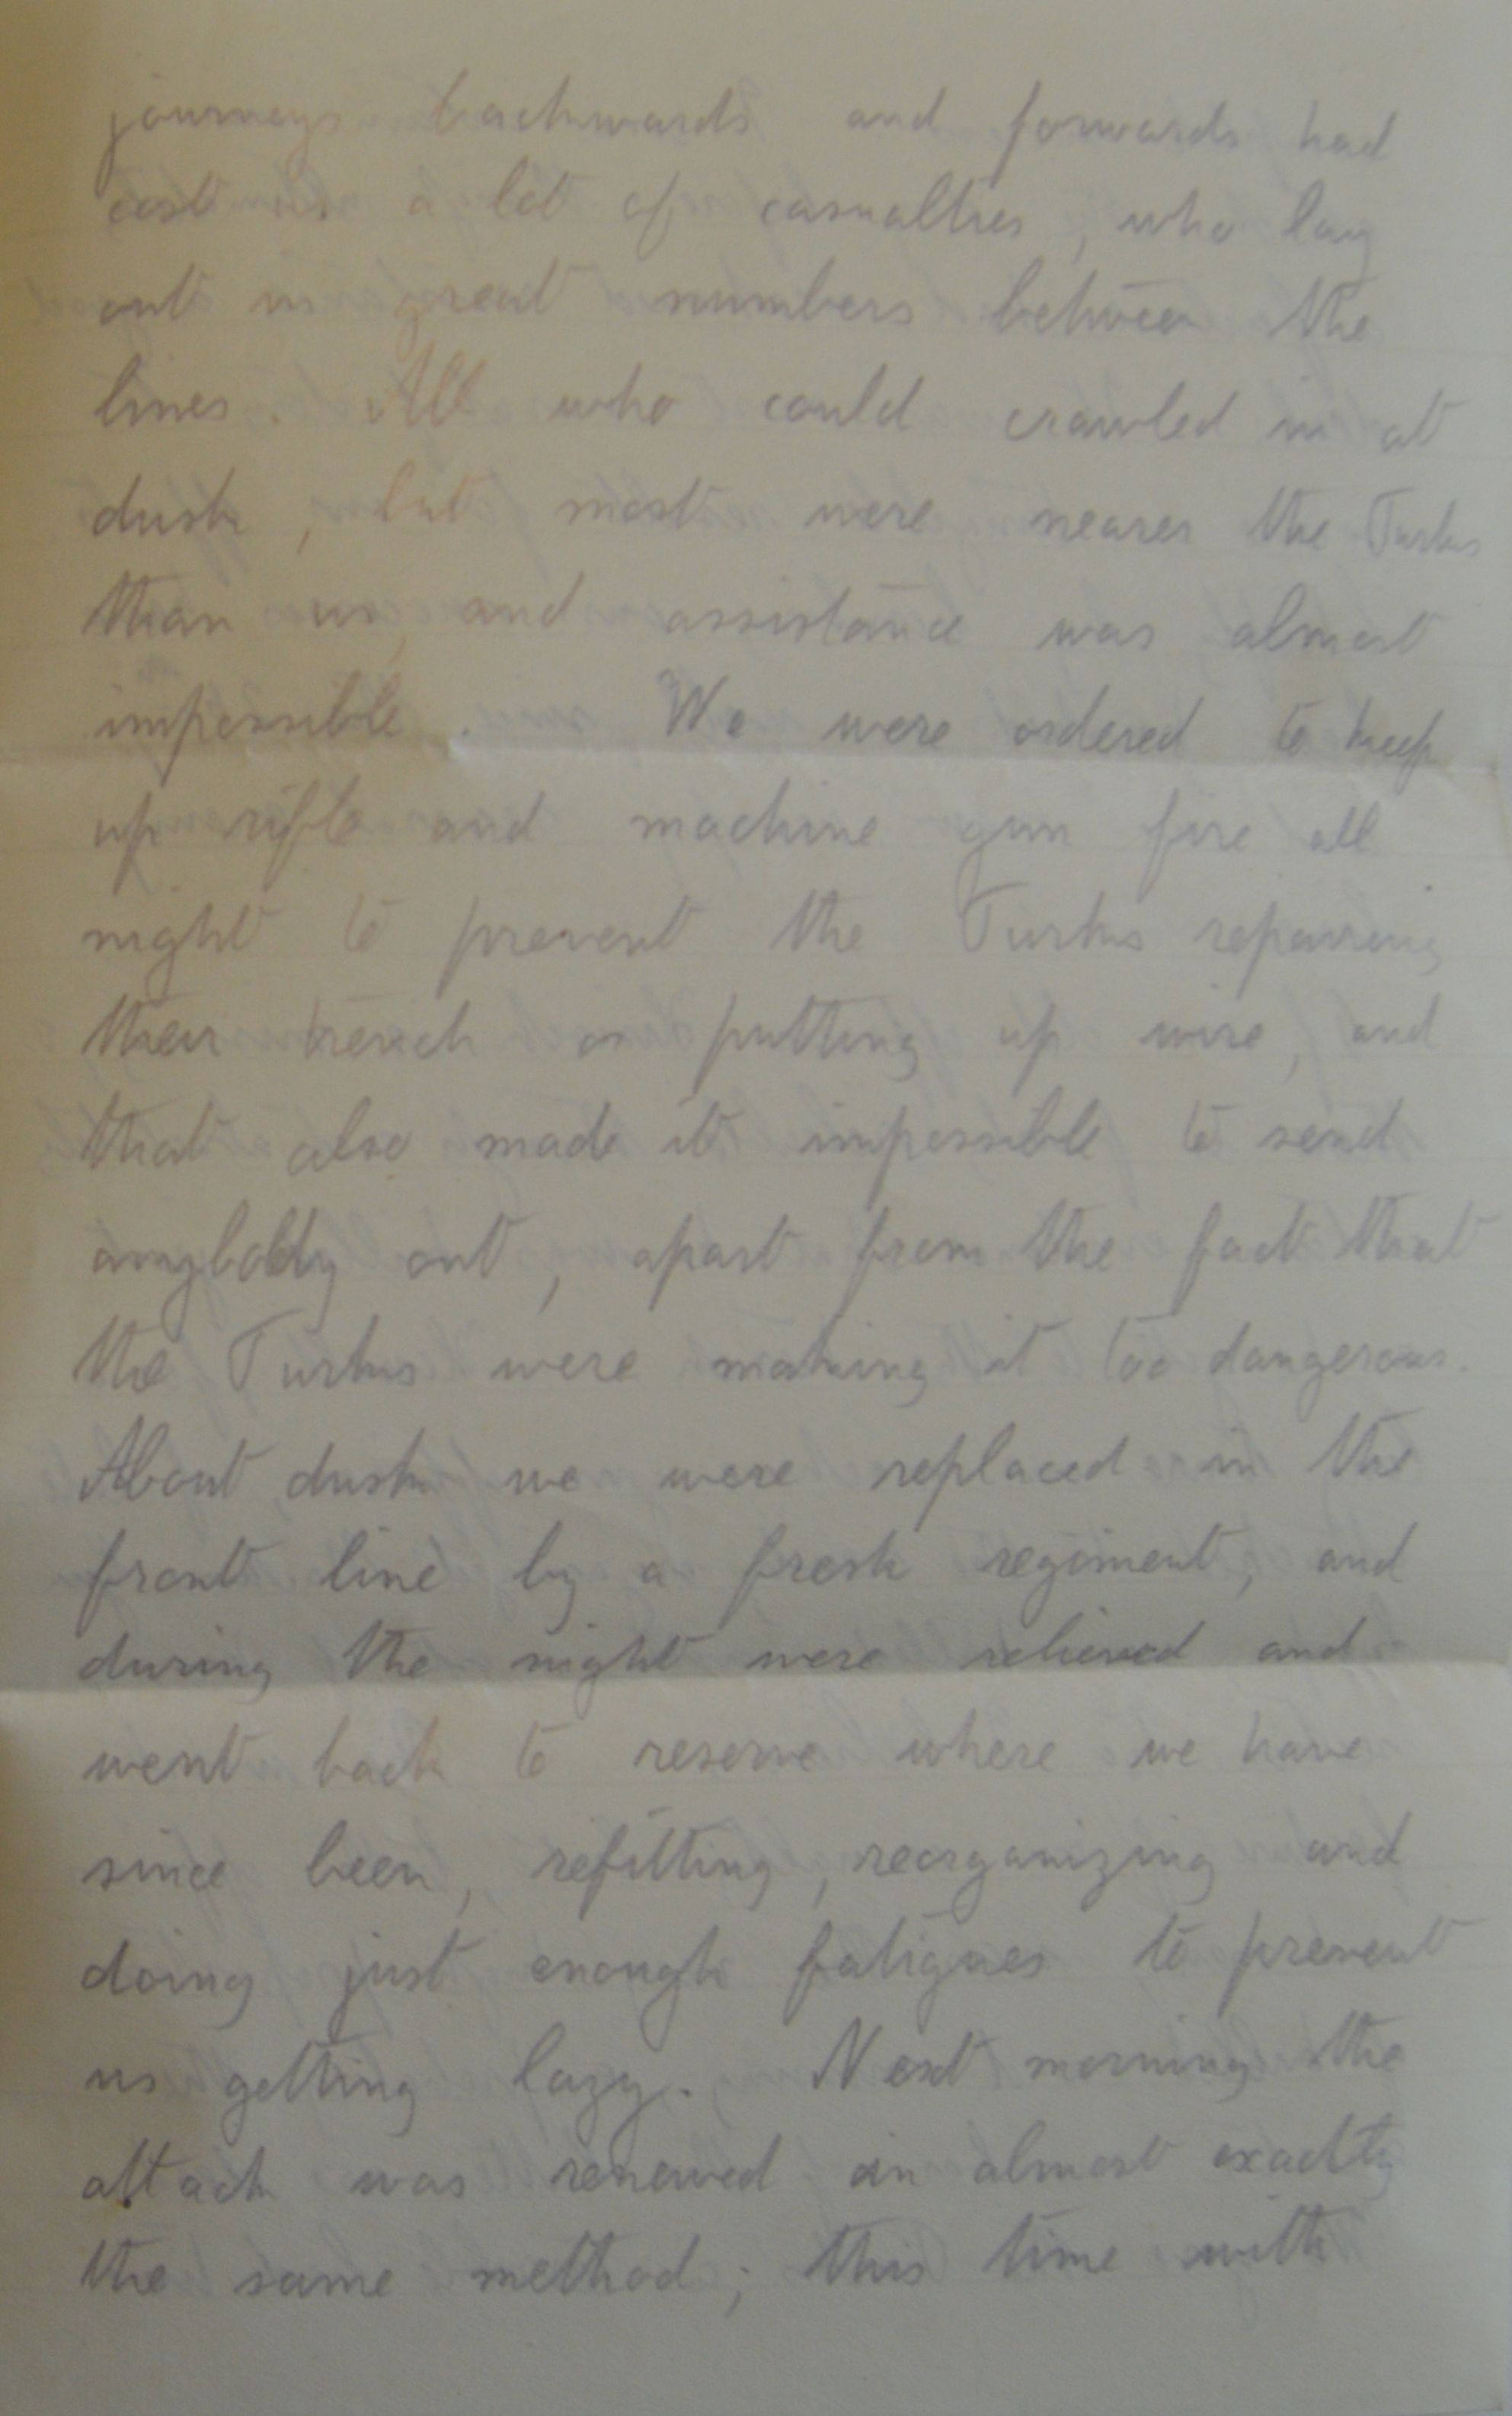 journeys backwards and forwards had
cost us a lot of casualties, who lay
out in great numbers between the
lines. All who could crawled in at
dusk, but most were nearer the Turks
than us, and assistance was almost
impossible. We were ordered to keep
up rifle and machine gun fire all
night to prevent the Turks repairing
their trench or putting up wire, and
that also made it impossible to send
anybody out, apart from the fact that
the Turks were making it too dangerous.
About dusk we were replaced in the
front line by a fresh regiment, and
during the night were relieved and
went back to reserve where we have
since been, refitting, reorganizing and
doing just enough fatigues to prevent
us getting lazy. Next morning the
attack was renewed in almost exactly
the same method; this time with